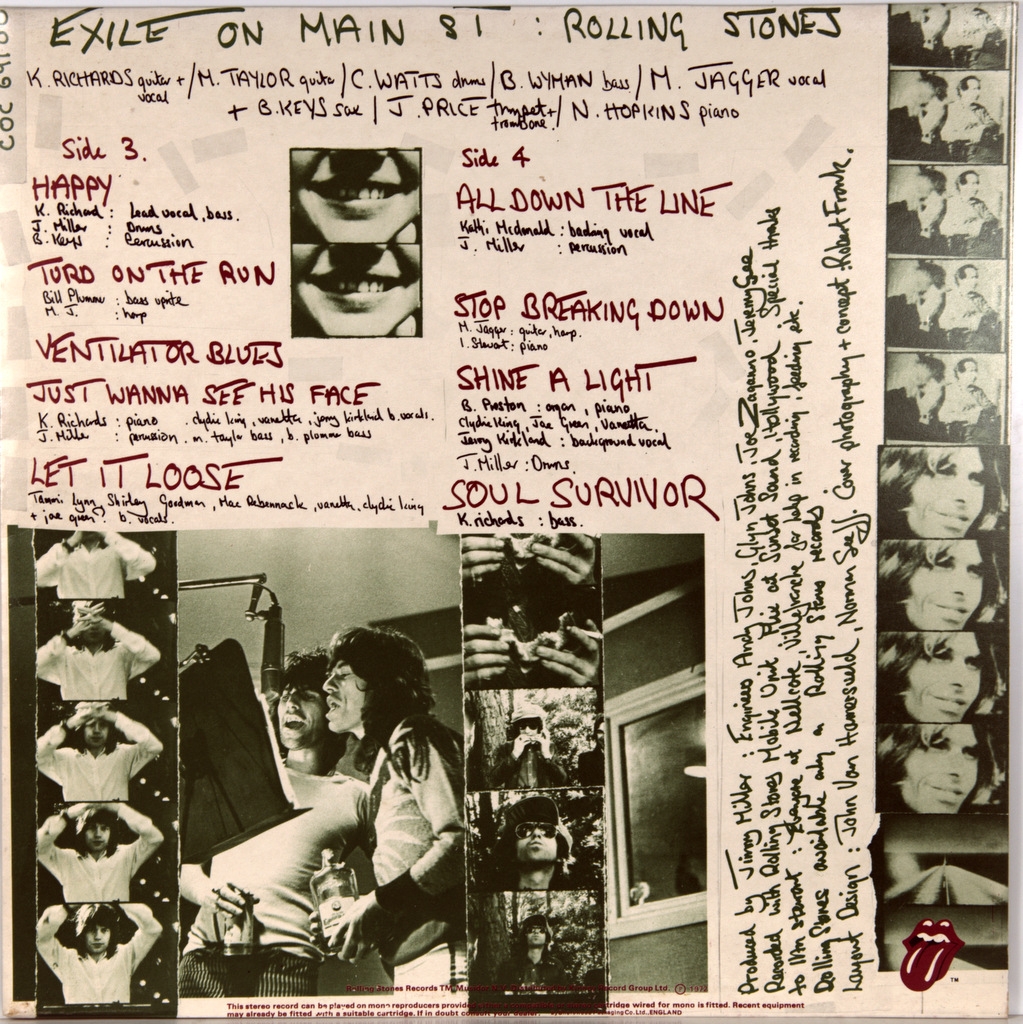 COC 69100
EXILE ON MAIN ST : ROLLING STONES
K. RICHARDS guitar + vocal / M. TAYLOR guitar / C. WATTS drums / B. WYMAN bass / M. JAGGER vocal
+ B. KEYS sax / J. PRICE trumpet + trombone / N. HOPKINS piano
Side 3.
HAPPY
K. Richard : Lead vocal, bass.
J. Miller : Drums
B. Keys : Percussion
TURD ON THE RUN
Bill Plummer : bass uprite
M. J. : harp
VENTILATOR BLUES
JUST WANNA SEE HIS FACE
K. Richards : piano . clydie king, vanetta, jerry kirkland b. vocals.
J. Miller : percussion . m. taylor bass , b. plommer bass
LET IT LOOSE
Tammi Lynn, Shirley Goodman, Mac Rebennack, vanetta, clydie king
+ joe green : b. vocals.
Side 4
ALL DOWN THE LINE
Kathi Mcdonald : backing vocal
J. Miller : percussion
STOP BREAKING DOWN
M. Jagger : guitar, harp.
I. Stewart : piano
SHINE A LIGHT
B. Preston : organ , piano
Clydie King, Joe Green, Vanetta,
Jerry Kirkland : background vocal
J. Miller : Drums
SOUL SURVIVOR
K. richards : bass.
Produced by Jimmy Miller : Engineers Andy Johns, Glyn Johns, Joe Zaganno, Jeremy Gee
Recorded with Rolling Stones Mobile Unit Plus at Sunset Sound, Hollywood . Special thanks
to Ian stewart : Everyone at Nellcote, Villefranche for help in recording, feeding etc.
Rolling Stones available only on Rolling Stones records
Layout Design : John Van Hamersveld, Norman Seeff. Cover photography + concept : Robert Frank.
TM
Rolling Stones Records TM, Group Ltd. ℗ 1972
This stereo record can be played on mono reproducers provided cartridge wired for mono is fitted. Recent equipment
may already be fitted with a suitable cartridge. If in doubt consult your dealer. Imaging Co. Ltd., ENGLAND